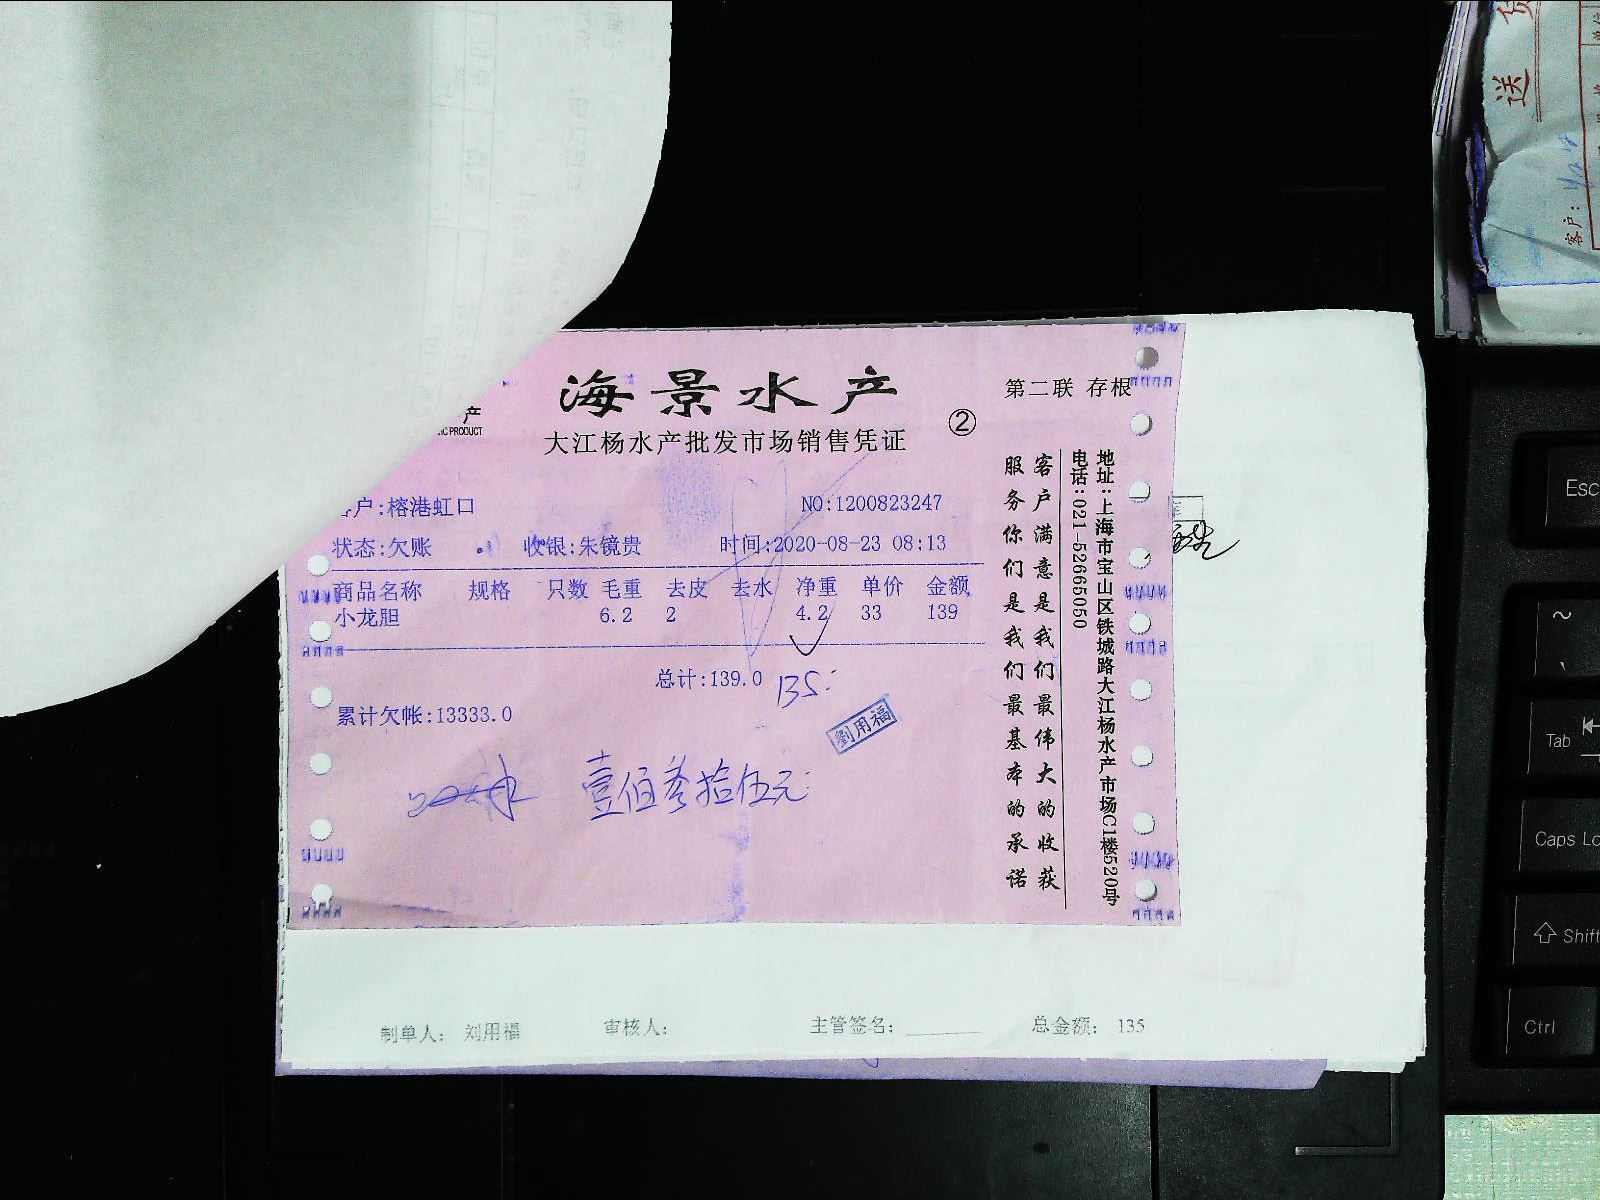 海景水产
第二联 存根
产
PRODUCT
②
大江杨水产批发市场销售凭证
户:榕港虹口
NO:1200823247
状态:欠账
收银:朱镜贵
时间:2020-08-23 08:13
商品名称 规格 只数 毛重 去皮 去水 净重 单价 金额
小龙胆 6.2 2 4.2 33 139
总计:139.0
135
累计欠帐:13333.0
劉用福
壹佰叁拾伍元
客户满意是我们最伟大的收获
服务你们是我们最基本的承诺
地址:上海市宝山区铁城路大江杨水产市场C1楼520号
电话:021-52665050
制单人: 刘用福 审核人: 主管签名: 总金额: 135
送 货
客户:
Esc
~
Tab
Caps Lo
Shift
Ctrl